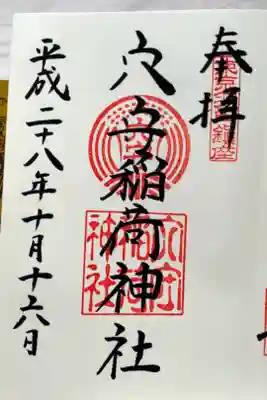 奉拝
東京羽田鎮座
穴守稲荷神社
穴守稲荷神社
平成二十八年十月十六日